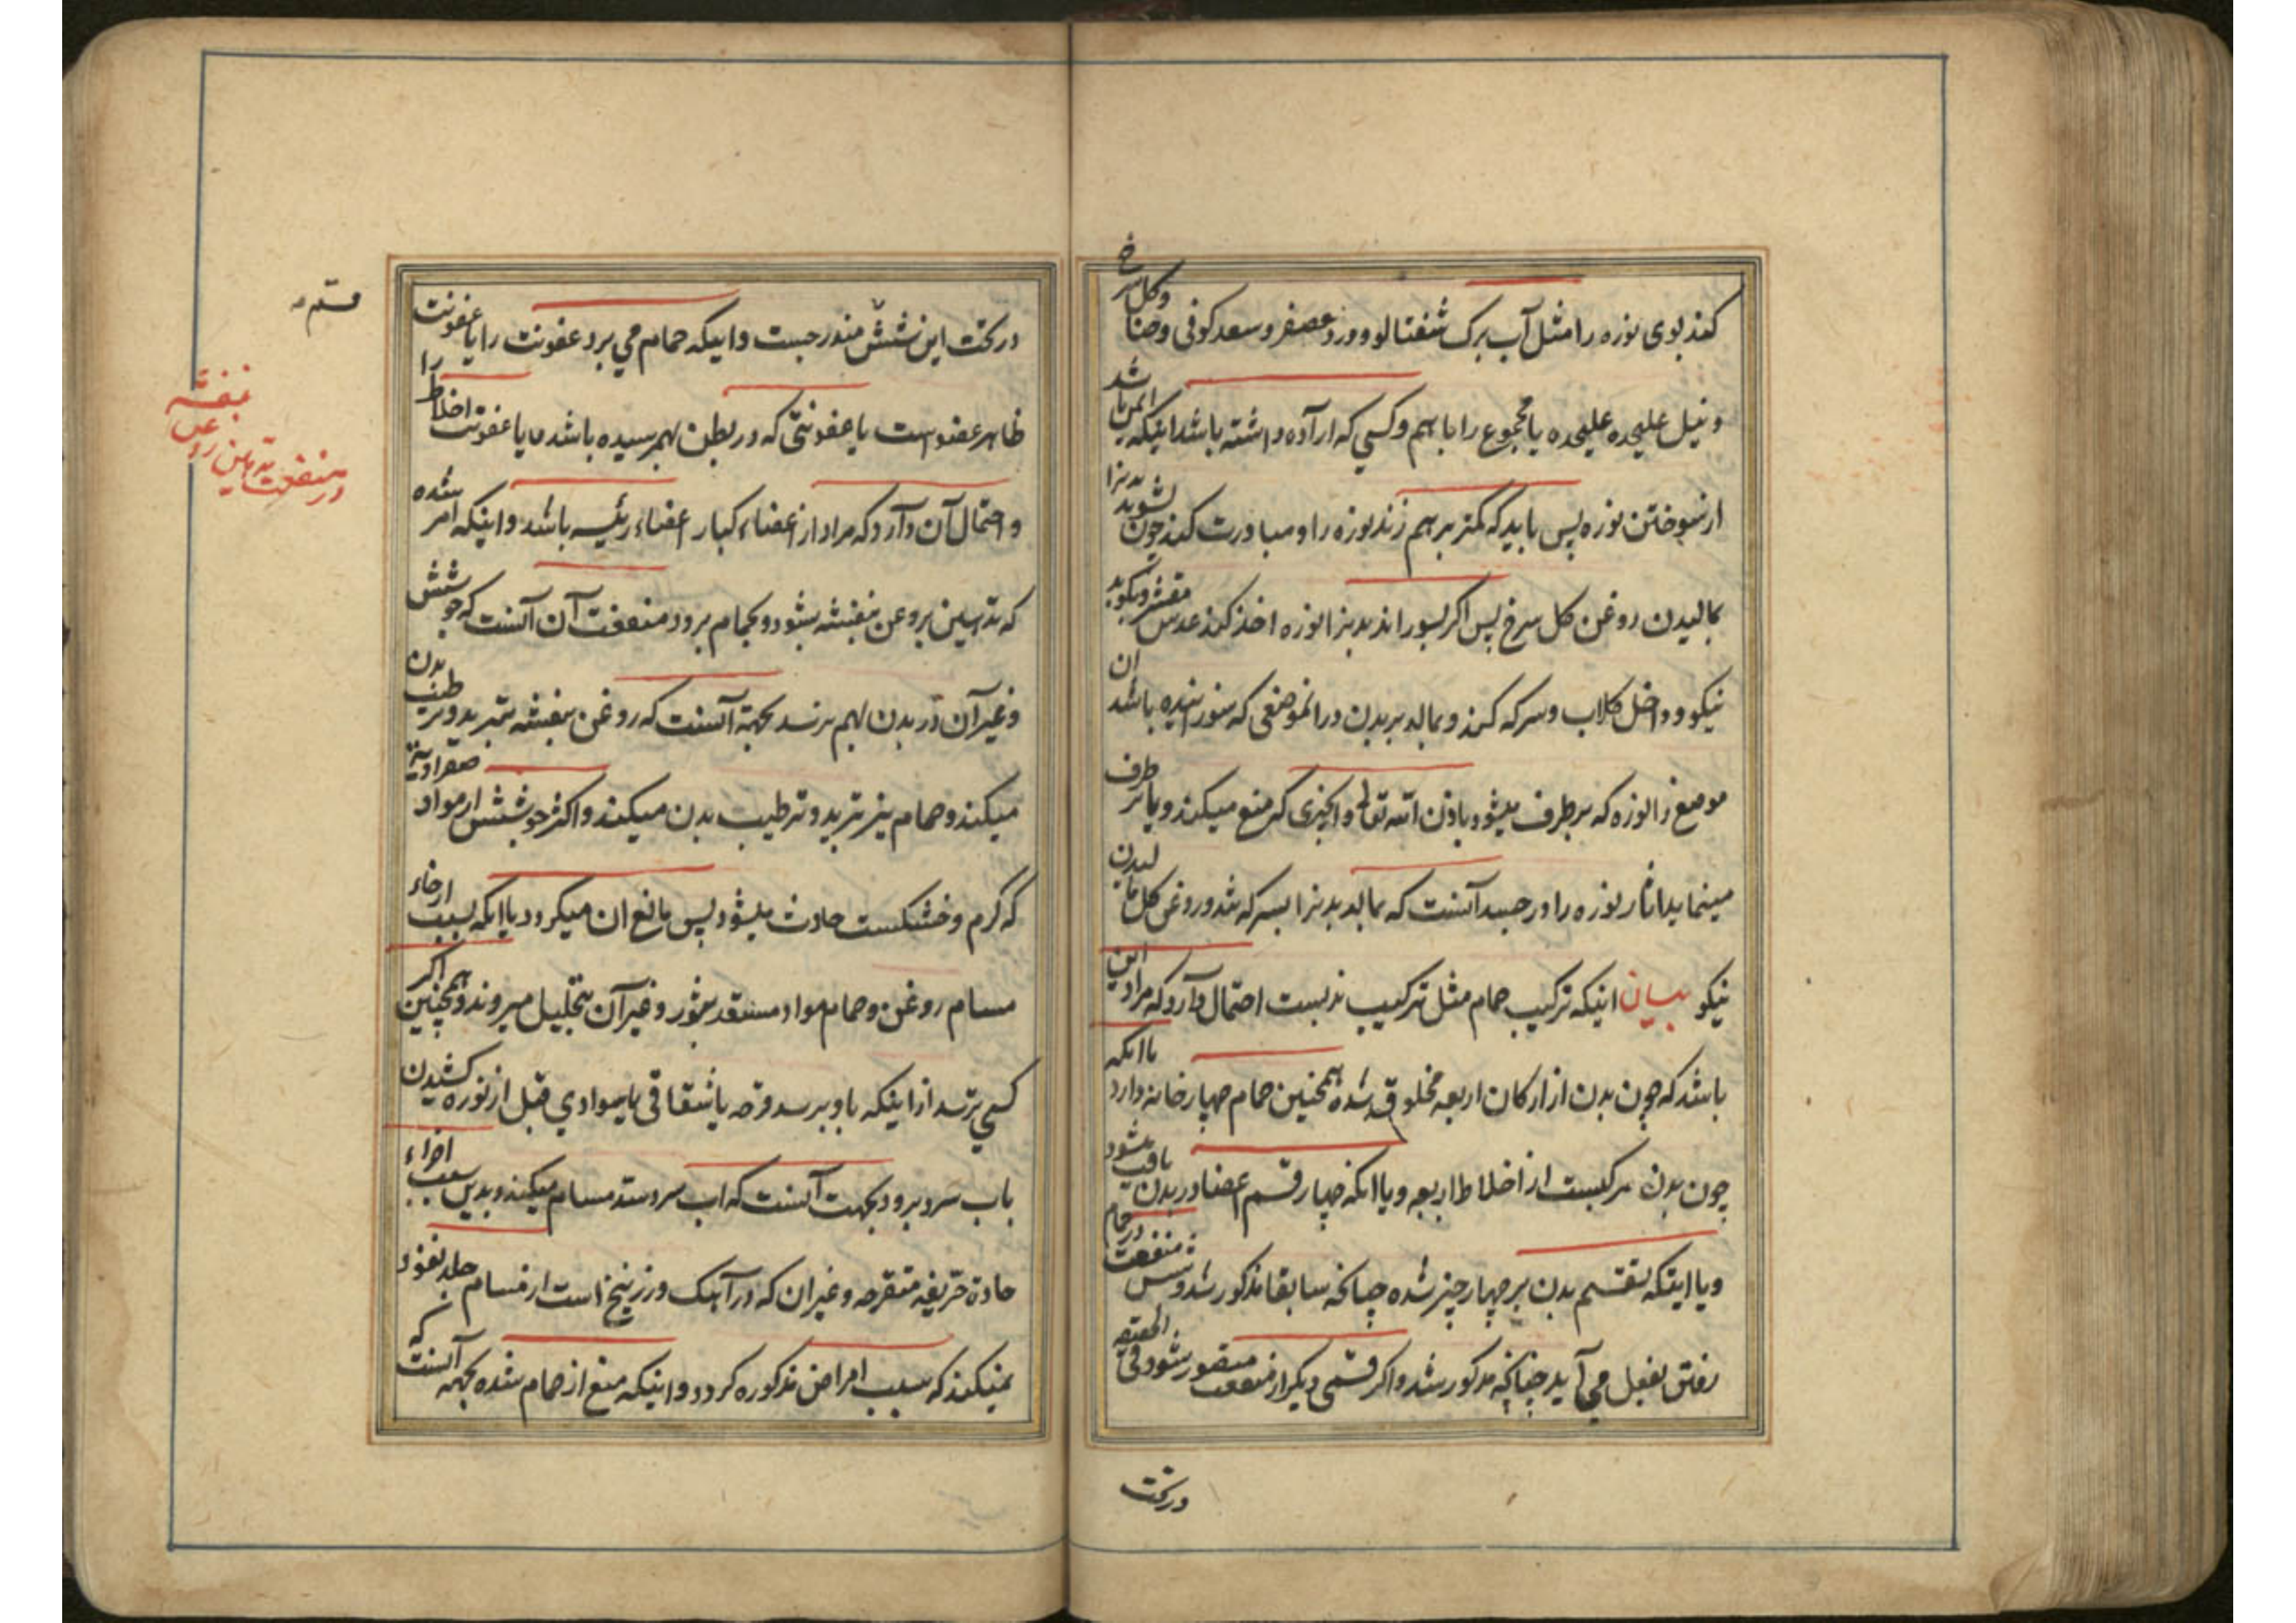 کند بوی نوزه را مثل آب برک شفتالو و ورد و عصفر و سعد کوفی وحنا و کل سرخ
و نیل علیحده علیحده یا مجموع را با هم و کسی که اراده داشته باشد اینکه ایمن باشد
از سوختن نوره پس باید که کمتر بر هم زند نوره را و مبادرت کند چون بشوید بدنرا
بمالیدن روغن کل سرخ پس اگر بسوراند بدنرا نوره اخذ کند عدس مقشر و بکوبد
نیکو و داخل کلاب و سرکه کند و بمالد بر بدن در انموضعی که سوزانیده باشد ان
موضع را نوره که بر طرف میشود باذن الله تعالی و انچیزی که منع میکند و یا بر طرف
مینماید اثار نوره را در جسد آنست که بمالد بدنرا بسرکه تند و روغن کل مالیدن
نیکو بیان اینکه ترکیب حمام مثل ترکیب بدنست احتمال دارد که مراد این
باشد که چون بدن از ارکان اربعه مخلوق شده همچنین حمام چهار خانه دارد یا انکه
چون بدن مرکبست از اخلاط اربعه و یا انکه چهار قسم اعضا در بدن یافت میشود
و یا اینکه تقسیم بدن بر چهار چیز شده چنانکه سابقا مذکور شد و سس منفعت در حمام
رفتن بفعل می آید چنانچه مذکور شد و اکر قسمی دیکر از منفعت متصور شود فی الحقیقه
در تحت
در تحت این شش مندرجست و اینکه حمام می برد عفونت را یا عفونت
ظاهر عضو است یا عفونتی که در بطن بهم رسیده باشد یا عفونت اخلاط را
و احتمال آن دارد که مراد از اعضاء کبار اعضاء رئیسه باشد و اینکه امر شده
که تدهین بروغن بنفشه بشود و بحمام برود منفعت آن آنست که جوشش
و غیر آن در بدن بهم نرسد بجهة آنست که روغن بنفشه تبرید و ترطیب بدن
میکند و حمام نیز تبرید و ترطیب بدن میکند و اکثر جوشش از مواد صفراویه
که کرم و خشکست حادث میشود پس مانع ان میکردد یا انکه بسبب ارخاء
مسام روغن و حمام مواد مستعد بثور و غیر آن بتحلیل میروند و همچنین اکر
کسی بترسد از اینکه باو برسد قرحه یا شقاقی یا سوادی قبل از نوره کشیدن
باب سرد برود بجهت آنست که اب سرد سد مسام میکند و بدین سبب اجزاء
حادة حریفه متقرحه و غیر ان که در آهک و زرنیخ است از مسام جلد نفوذ
نمیکند که سبب امراض مذکوره کردد و اینکه منع از حمام شده بجهه آنست که
در منفعت تدهین روغن
بنفشه